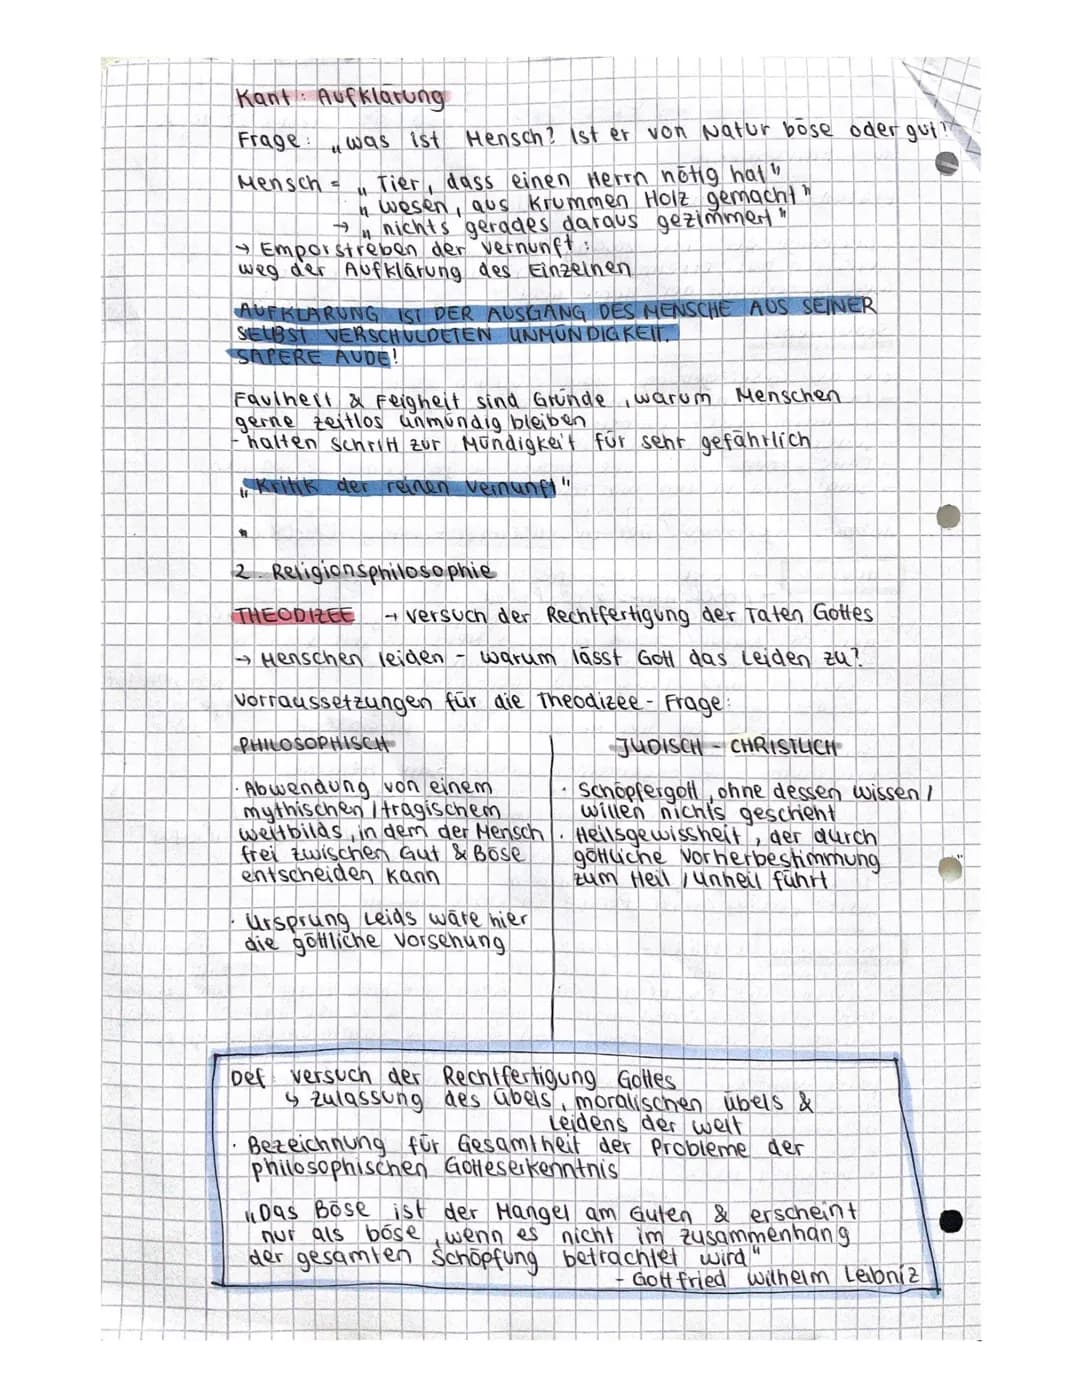 Kant: Aufklärung
Frage: „was ist Mensch? Ist er von Natur böse oder gut?"
Mensch = „Tier, dass einen Herrn nötig hat"
„wesen, aus Krummen Holz gemacht"
→ „nichts gerades daraus gezimmert"
→ Emporstreben der vernunft:
weg der Aufklärung des Einzelnen
AUFKLÄRUNG IST DER AUSGANG DES MENSCHE AUS SEINER
SELBST VERSCHULDETEN UNMÜNDIGKEIT.
SAPERE AUDE!
Faulheit & Feigheit sind Gründe, warum Menschen
gerne zeitlos unmündig bleiben
- halten Schritt zur Mündigkeit für sehr gefährlich
„Kritik der reinen Vernunft"
2. Religionsphilosophie
THEODIZEE → versuch der Rechtfertigung der Taten Gottes
→ Menschen leiden - warum lässt Gott das Leiden zu?
Vorraussetzungen für die Theodizee-Frage:
PHILOSOPHISCH
· Abwendung von einem
mythischen / tragischem
weltbilds, in dem der Mensch
frei zwischen Gut & Böse
entscheiden kann
· Ursprung Leids wäre hier
die göttliche Vorsehung
JÜDISCH - CHRISTLICH
· Schöpfergott, ohne dessen wissen /
willen nichts geschieht
· Heilsgewissheit, der durch
göttliche Vorherbestimmung
zum Heil / unheil führt
Def versuch der Rechtfertigung Gottes
↳ zulassung des übels, moralischen übels &
Leidens der welt
· Bezeichnung für Gesamtheit der Probleme der
philosophischen Gotteserkenntnis
„Das Böse ist der Mangel am Guten & erscheint
nur als böse, wenn es nicht im zusammenhang
der gesamten Schöpfung betrachtet wird"
- Gottfried Wilhelm Leibniz